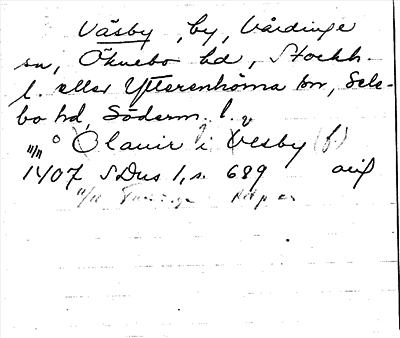 Väsby, by, Vårdinge
sn, Öknebo hd, Stockh.
l. eller Ytterenhörna sn, Sele-
bo hd, Söderm. l.
Olauir i Vesby (f)
1407 SDns 1, s. 689 avif